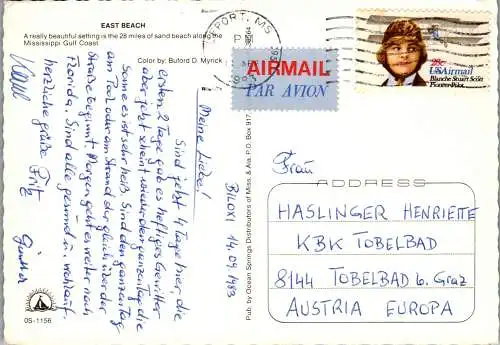 EAST BEACH
A really beautiful setting is the 28 miles of sand beach along the
Mississippi Gulf Coast
Color by: Buford D. Myrick
GULFPORT, MS
P M
AIRMAIL
PAR AVION
28c
USAirmail
Blanche Stuart Scott
Pioneer Pilot
BILOXI 14.09.1983
Meine Liebe!
Sind jetzt 4 Tage hier, die
ersten 2 Tage gab es heftiges Gewitter
aber jetzt scheint wieder den ganzen Tag die
Sonne es ist sehr heiß. Sind den ganzen Tag
am Pool oder am Strand der gleich über der
Straße beginnt. Morgen geht es weiter nach
Florida. Sind alle gesund u. wohlauf.
herzliche Grüße Fritz
Günther
Pub. by Ocean Springs Distributors of Miss. & Ala. P.O. Box 917
OS-1156
Frau
ADDRESS
HASLINGER HENRIETTE
KBK TOBELBAD
8144 TOBELBAD b. Graz
AUSTRIA EUROPA